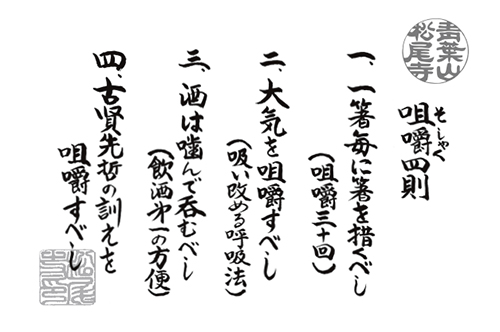 青葉山
松尾寺
そしゃく
咀嚼四則
一、一箸毎に箸を措くべし
(咀嚼三十回)
二、大気を咀嚼すべし
(吸い改める呼吸法)
三、酒は噛んで呑むべし
(飲酒第一の方便)
四、古賢先哲の訓えを
咀嚼すべし